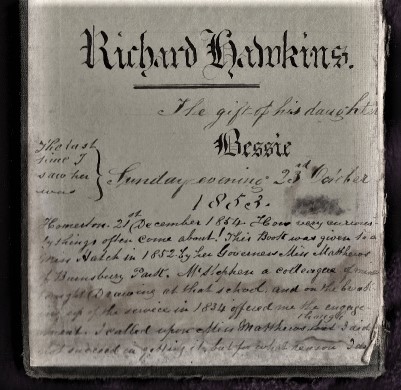 Richard Hawkins.
The gift of his daughter
Bessie
The last
time I
saw her
was
Sunday evening 23rd October
1853.
Homerton. 21st December 1854. How very curious-
ly things often come about! This Book was given to
Miss Hatch in 1852 by her Governess Miss Matthews
Barnsbury Park. Mr Stephen a colleague of
taught Drawing at that school and on the break-
ing up of the service in 1834 offered me the engage-
ment. I called upon Miss Matthews and I did
though
succeed in getting it, but for what reason I